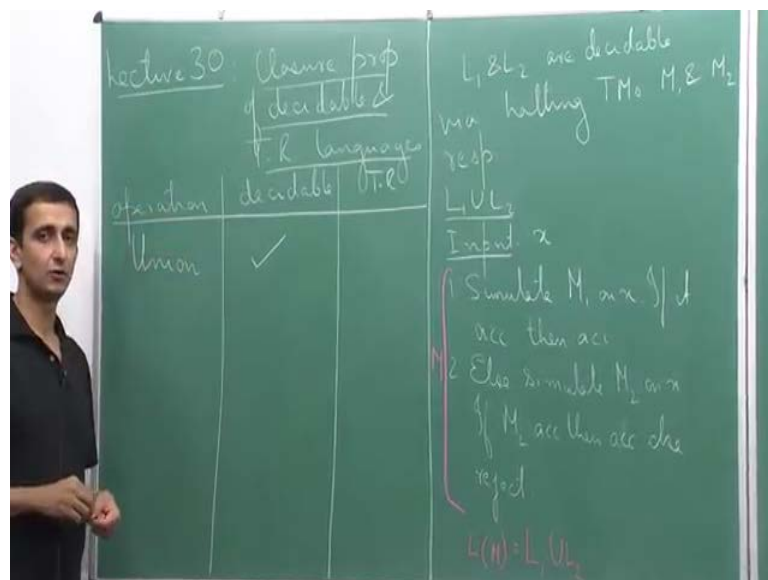 Lecture 30: Closure prop
of decidable &
T.R languages
operation decidable T.R
Union ✓
L₁ & L₂ are decidable
via halting TMs M₁ & M₂
resp
L₁UL₂
Input x
1 Simulate M₁ on x. If it
acc then acc
2 Else simulate M₂ on x
If M₂ acc then acc else
reject
M
L(M) = L₁UL₂